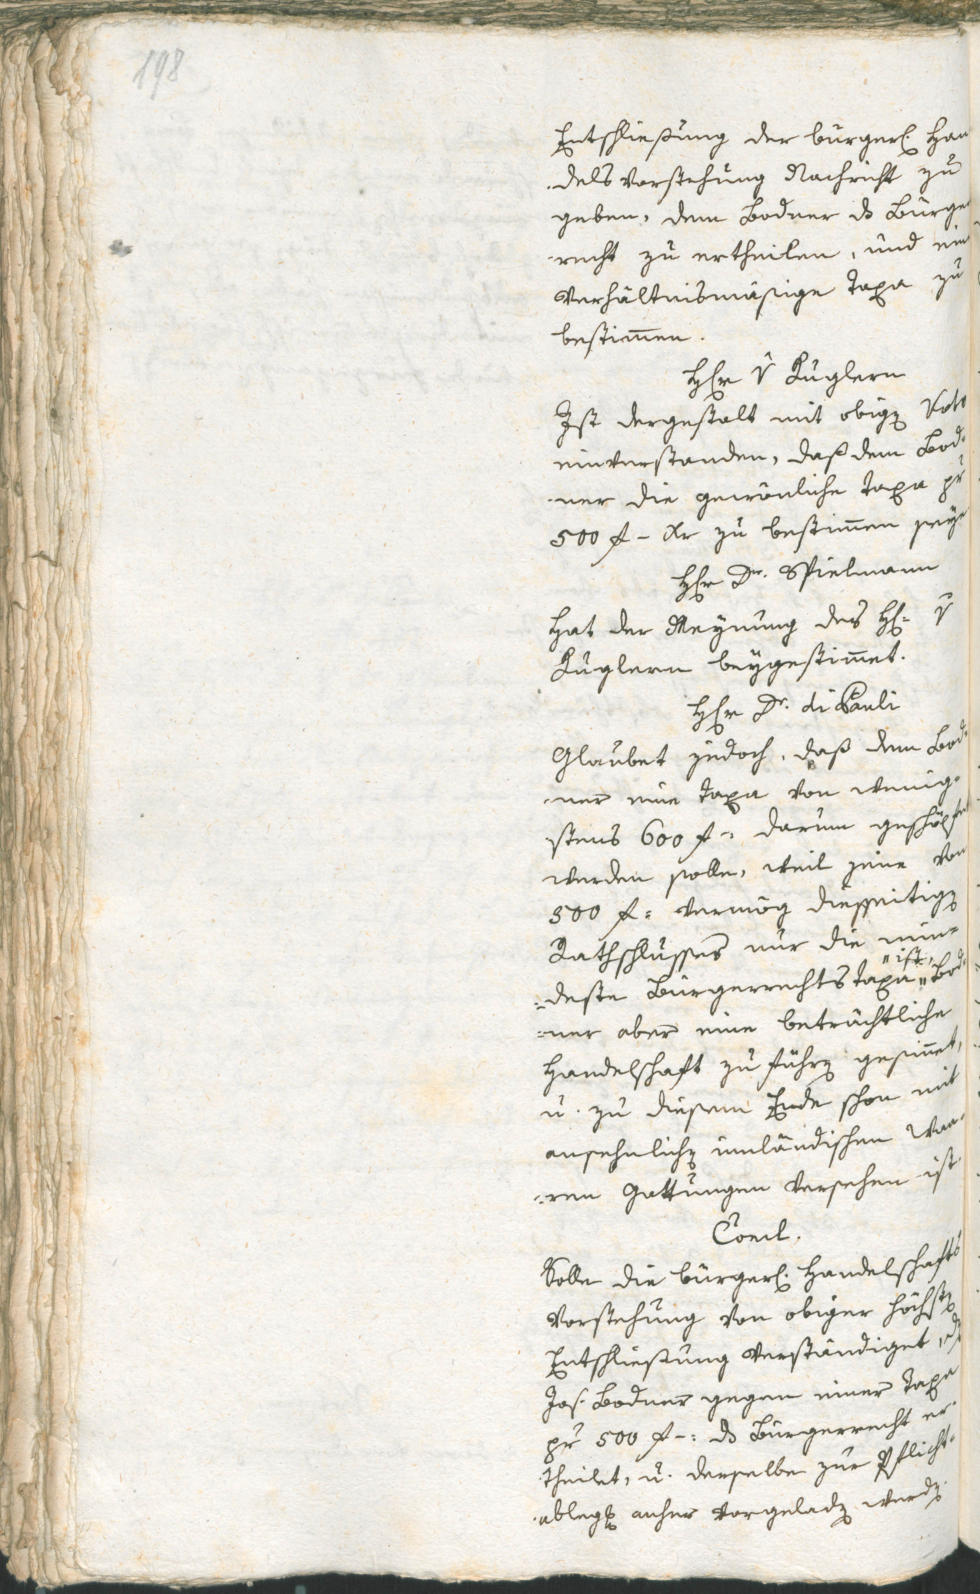 198
Entschließung der bürgerl. Han
dels Vorstehung Nachricht zu
geben, dem Bodner ds Bürger
recht zu ertheilen, und eine
Verhältnismäßige Taxa zu
bestim̄en.
Hr v Kuglern
Ist dergestalt mit obigen Voto
einverstanden, daß dem Bod-
ner die gewönliche Taxa pr
500 f – Xr zu bestim̄en seye
Hr Dr. Spielmann
Hat der Meynung des H: v
Kuglern beygestim̄et.
Hr Dr. di Pauli
Glaubet jedoch, daß dem Bod-
ner eine Taxa von wenig-
stens 600 f -: darum geschöpfet
werden solle, weil jene von
500 f: vermög diesseitigen
Rathschlusses nur die min-
deste Bürgerrechtstaxa "ist," Bod-
ner aber eine beträchtliche
Handelschaft zu führen gesin̄et,
u. zu diesem Ende schon mit
ansehnlichen innländischen Waa-
ren Gattungen versehen ist.
Concl.
Solle die bürgerl. Handelschafts
Vorstehung von obiger höchsten
Entschließung verständiget, dem
Jos. Bodner gegen einer Taxa
pr 500 f -: ds Bürgerrecht er-
theilet, u. derselbe zur Pflicht-
ablegung anher vorgeladen werden.